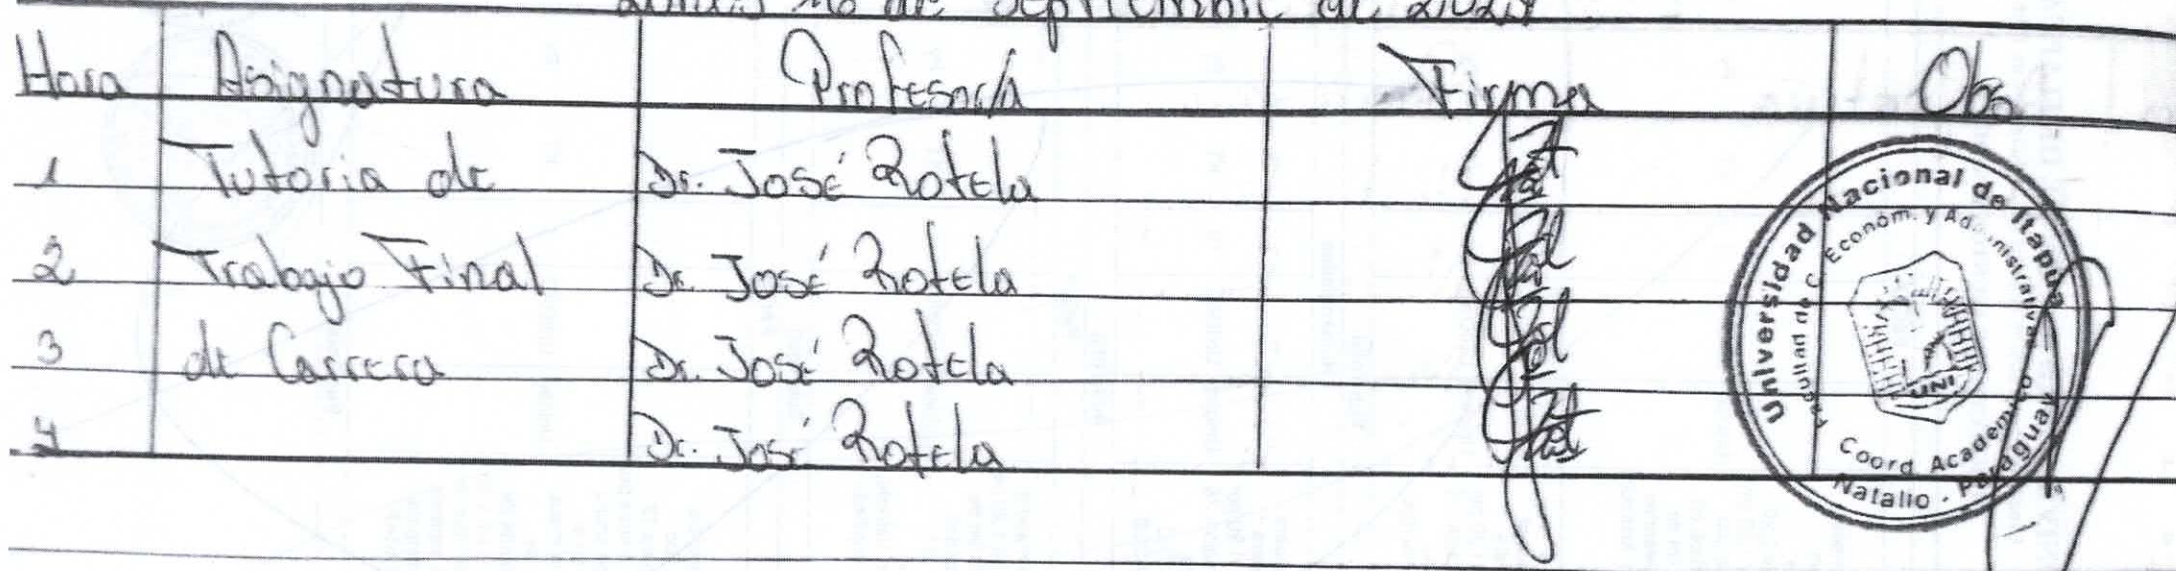 de Septiembre de
Hora Asignatura Profesor/a Firma Obs
1 Tutoria de Dr. José Rotela
2 Trabajo Final Dr. José Rotela
3 de Carrera Dr. José Rotela
4 Dr. José Rotela
Universidad Nacional de Itapúa
Facultad de C. Económ. y Administrativas
UNI
Coord Academico
Natalio - Paraguay